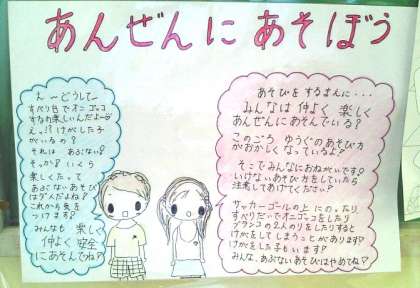 あんぜんにあそぼう
えーどうしてー
すべり台でオニゴッコ
するの楽しいんだよー
え、!?けがした子
がいるの?
それは あぶない!
そっか!いくら
楽しくたって
あぶないあそび
はダメだよね?
これから気を
つけます?
みんなも 楽しく
仲よく 安全
にあそんでね♡
あそびをするまえに・・・
みんなは 仲よく 楽しく
あんぜんにあそんでいる?
このごろ ゆうぐのあそび方
がおかしくなっているよ?
そこでみんなにおねがいです!
いけないあそび方をしていたら
注意してあげてください?
サッカーゴールの上にのったり
すべりだいでオニゴッコをしたり
ブランコの2人のりをしたりすると
けがをしてしまうことがあります?
けがをした子もいます?
みんな、あぶないあそびはやめてね♡